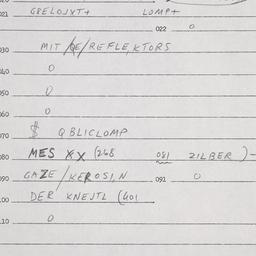 021 GBELOJXT+ LOMP+
022 0
030 MIT /DE/REFLEKTORS
040 0
050 0
060 0
070 $ QBLICLOMP
080 MES XX (268 081 ZILBER )-
090 GAZE/KEROSIN 091 0
DER KNEJTL (401
0